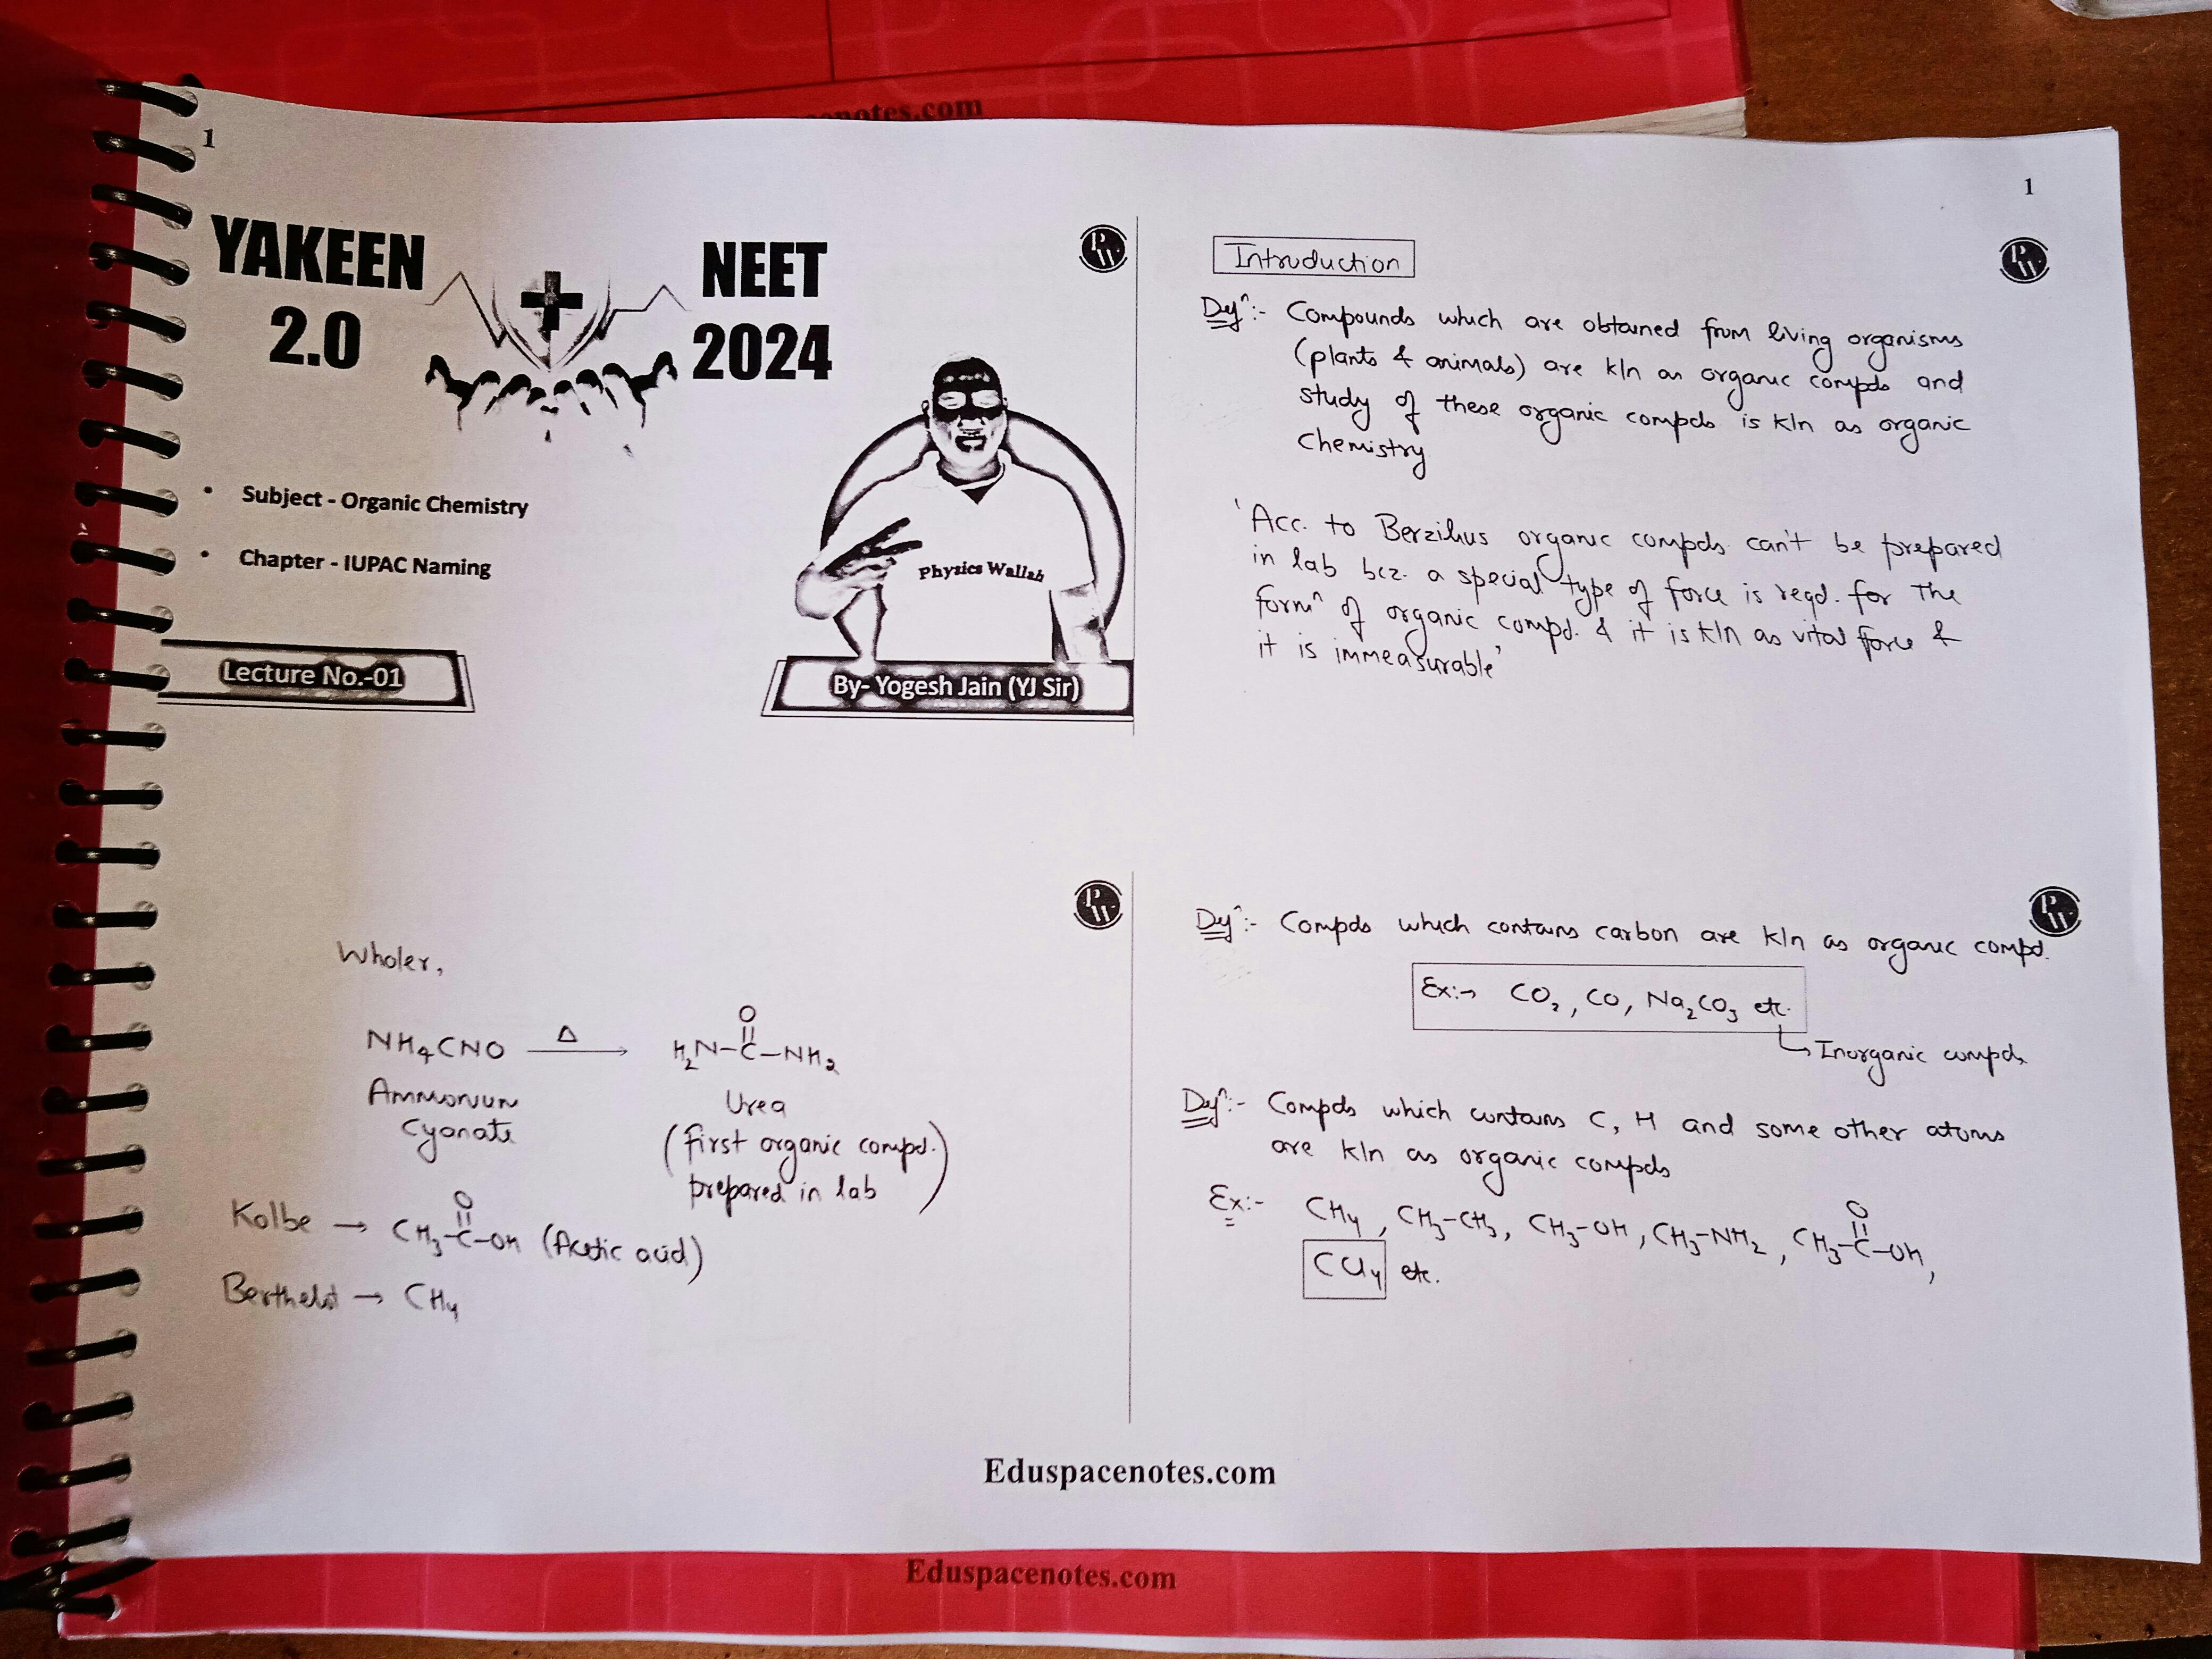 enotes.com
1
1
YAKEEN
2.0
NEET
2024
PW
• Subject - Organic Chemistry
• Chapter - IUPAC Naming
Physics Wallah
Lecture No.-01
By- Yogesh Jain (YJ Sir)
PW
Introduction
Defⁿ:- Compounds which are obtained from living organisms
(plants & animals) are k/n as organic compds and
study of these organic compds is k/n as organic
chemistry
'Acc. to Berzilius organic compds. can't be prepared
in lab bcz. a special type of force is reqd. for the
formⁿ of organic compd. & it is k/n as vital force &
it is immeasurable'
PW
Wholer,
NH₄CNO —Δ→ H₂N-C-NH₂
O
Ammonium
Cyanate
Urea
(first organic compd.
prepared in lab)
Kolbe → CH₃-C-OH (Acetic acid)
O
Berthelot → CH₄
PW
Defⁿ:- Compds which contains carbon are k/n as organic compd.
Ex:→ CO₂, CO, Na₂CO₃ etc.
↳ Inorganic compds
Defⁿ:- Compds which contains C, H and some other atoms
are k/n as organic compds
Ex:- CH₄, CH₃-CH₃, CH₃-OH, CH₃-NH₂, CH₃-C-OH,
O
CCl₄ etc.
Eduspacenotes.com
Eduspacenotes.com